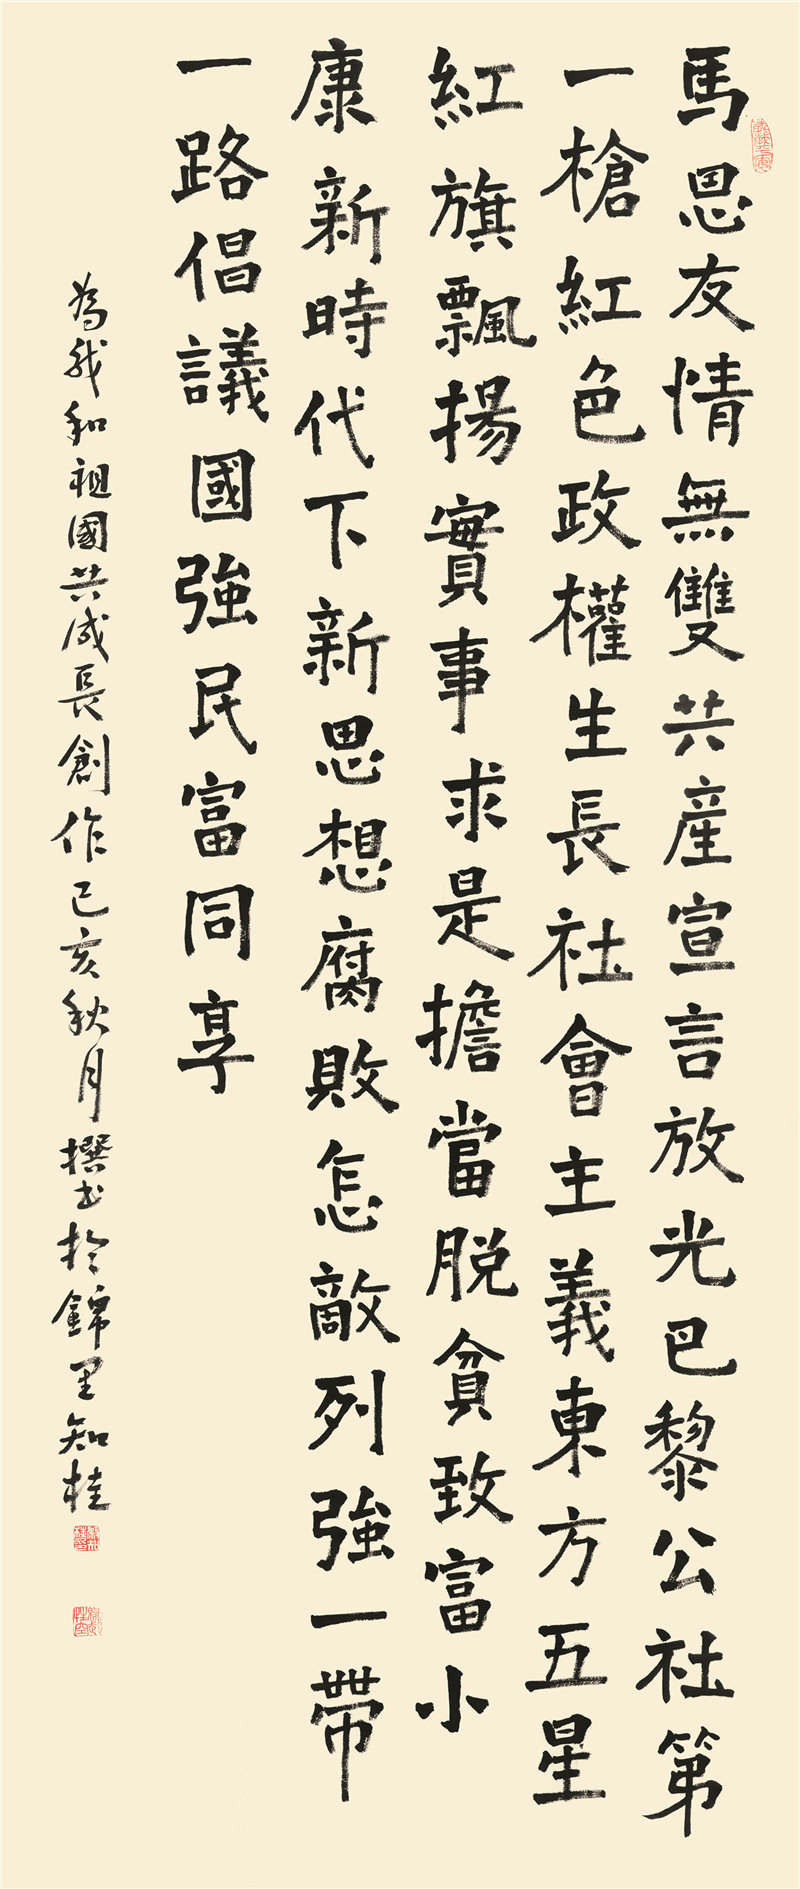 馬恩友情無雙共産宣言放光巴黎公社第
一槍紅色政權生長社會主義東方五星
紅旗飄揚實事求是擔當脱貧致富小
康新時代下新思想腐敗怎敵列強一帶
一路倡議國強民富同享
為我和祖國共成長創作己亥秋月撰书於錦里知桂